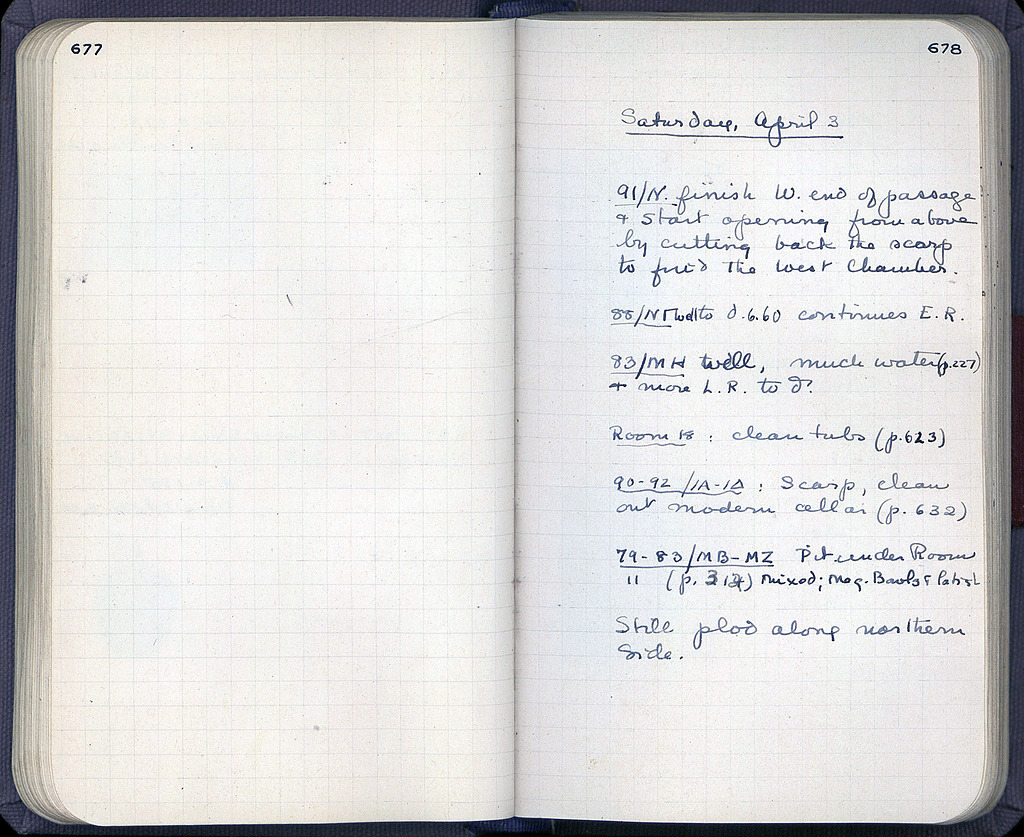 677
678
Saturday, April 3
91/N. finish W. end of passage
+ start opening from above
by cutting back the scarp
to find the west chamber.
88/NΓ well to d. 6.60 continues E.R.
83/MH well, much water (p.227)
+ more L.R. to d?
Room 18 : clean tubs (p.623)
90-92/ΙΑ-ΙΔ : Scarp, clean
out modern cellar (p. 632)
79-83/MB-MZ Pit under Room
11 (p. ) mixed; Meg. Bowls &
Still plod along northern
side.